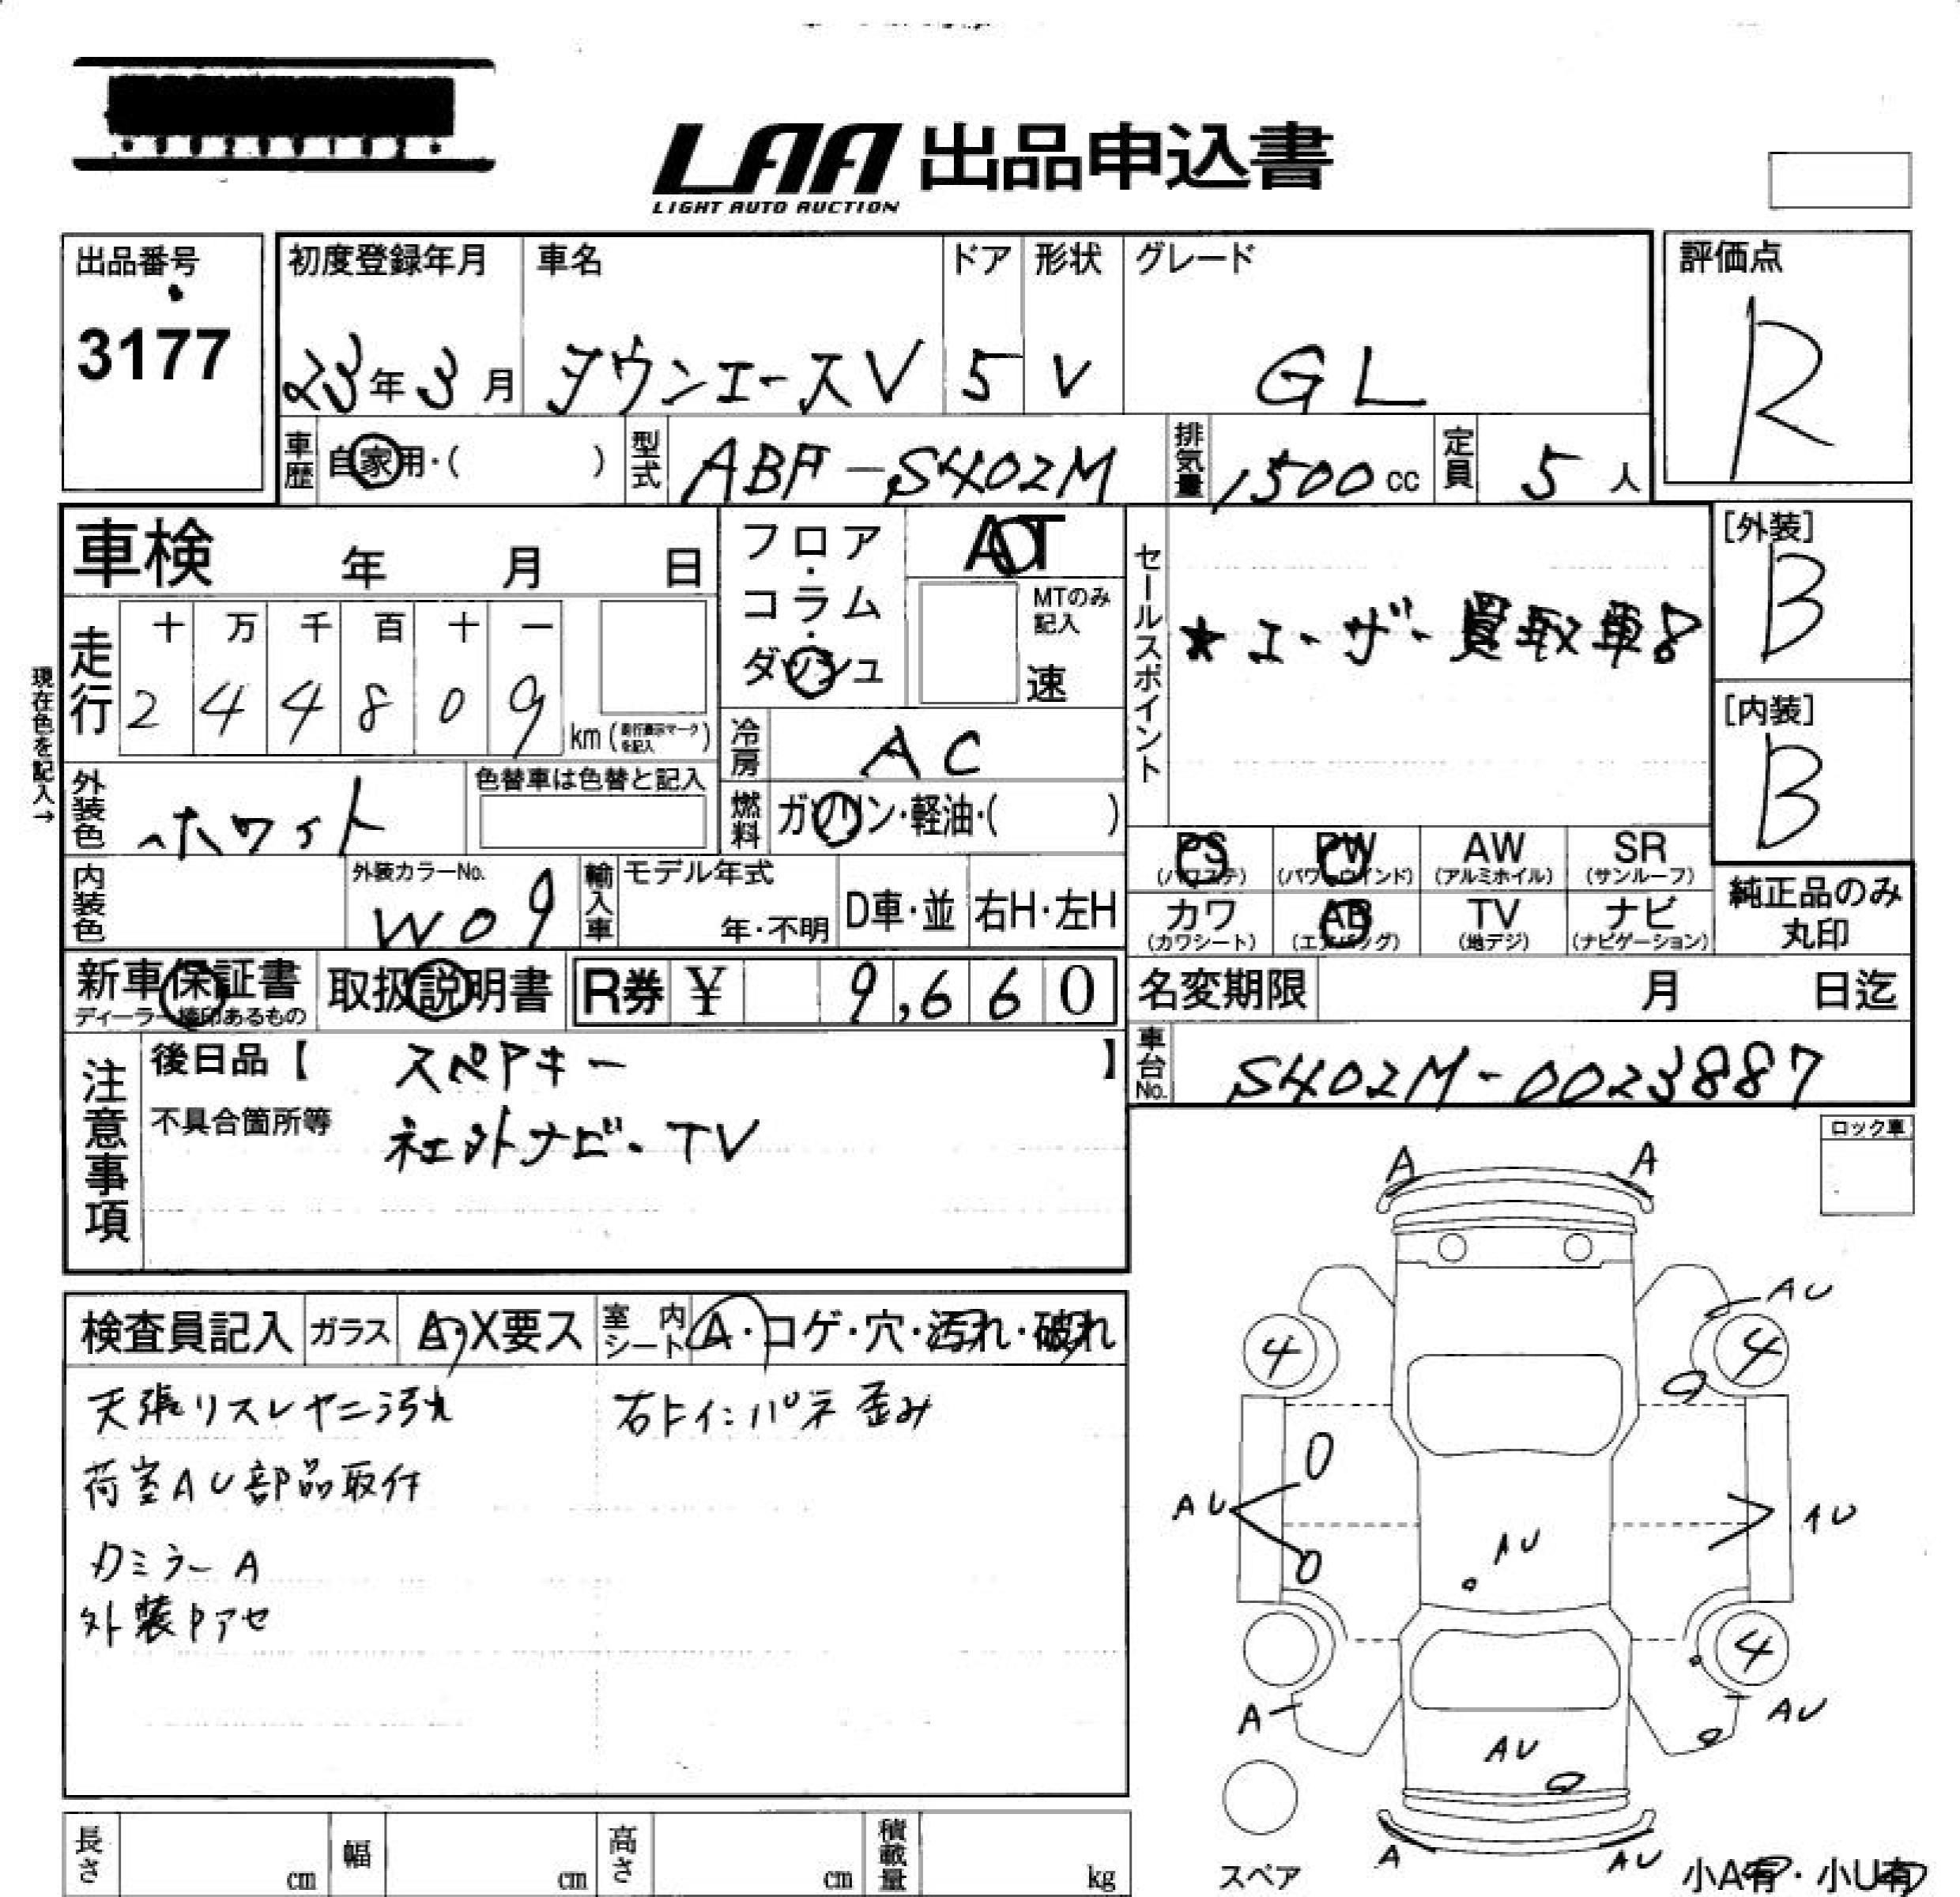 LAA 出品申込書
LIGHT AUTO AUCTION
出品番号
3177
初度登録年月
23年3月
車名
タウンエースV
ドア
5
形状
V
グレード
GL
評価点
R
車歴
自家用・( )
型式
ABF-S402M
排気量
1500cc
定員
5人
車検 年 月 日
走行
十 万 千 百 十 一
2 4 4 8 0 9
km(走行表示マークを記入)
現在色を記入→
フロア・コラム・ダッシュ
AT
MTのみ記入
速
冷房
AC
燃料
ガソリン・軽油・( )
セールスポイント
★ユーザー買取車!
[外装]
B
[内装]
B
外装色
ホワイト
色替車は色替と記入
内装色
外装カラーNo.
W09
輸入車
モデル年式
年・不明
D車・並
右H・左H
PS
(パワステ)
PW
(パワーウインド)
AW
(アルミホイル)
SR
(サンルーフ)
カワ
(カワシート)
AB
(エアバッグ)
TV
(地デジ)
ナビ
(ナビゲーション)
純正品のみ
丸印
新車保証書
ディーラー捺印あるもの
取扱説明書
R券 ¥ 9,660
名変期限 月 日迄
車台No.
S402M-0023887
注意事項
後日品【 スペアキー 】
不具合箇所等
社外ナビ・TV
ロック車
検査員記入
ガラス
A・X要ス
室内シート
A・コゲ・穴・汚れ・破れ
天張リスレヤニ汚れ
右トインパネ歪み
荷室AU部品取付
カミラーA
外装Pアセ
A
A
AU
4
4
AU
AU
AU
4
A
AU
AU
A
AU
スペア
小A有・小U有
長さ cm
幅 cm
高さ cm
積載量 kg